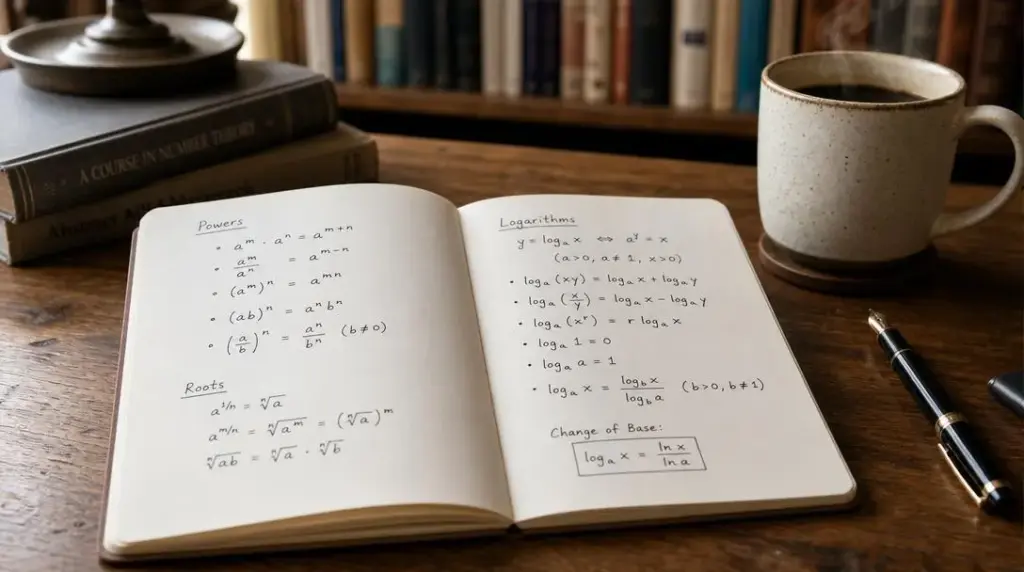 A COURSE IN NUMBER THEORY
Powers
• aᵐ · aⁿ = aᵐ⁺ⁿ
• aᵐ/aⁿ = aᵐ⁻ⁿ
• (aᵐ)ⁿ = aᵐⁿ
• (ab)ⁿ = aⁿbⁿ
• (a/b)ⁿ = aⁿ/bⁿ (b ≠ 0)
Roots
a^{1/n} = ⁿ√a
a^{m/n} = ⁿ√(aᵐ) = (ⁿ√a)ᵐ
ⁿ√(ab) = ⁿ√a · ⁿ√b
Logarithms
y = logₐ x ⇔ aʸ = x
(a>0, a≠1, x>0)
• logₐ (xy) = logₐ x + logₐ y
• logₐ (x/y) = logₐ x − logₐ y
• logₐ (xʳ) = r logₐ x
• logₐ 1 = 0
• logₐ a = 1
• logₐ x = log_b x / log_b a (b>0, b≠1)
Change of Base:
logₐ x = ln x / ln a